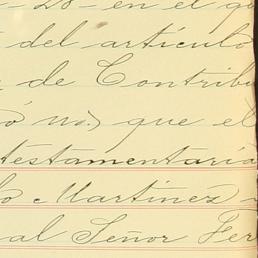 - 20 - en el q
del artículo
de Contribu
ó no) que el
testamentaria
lo Martinez
al Señor Fer